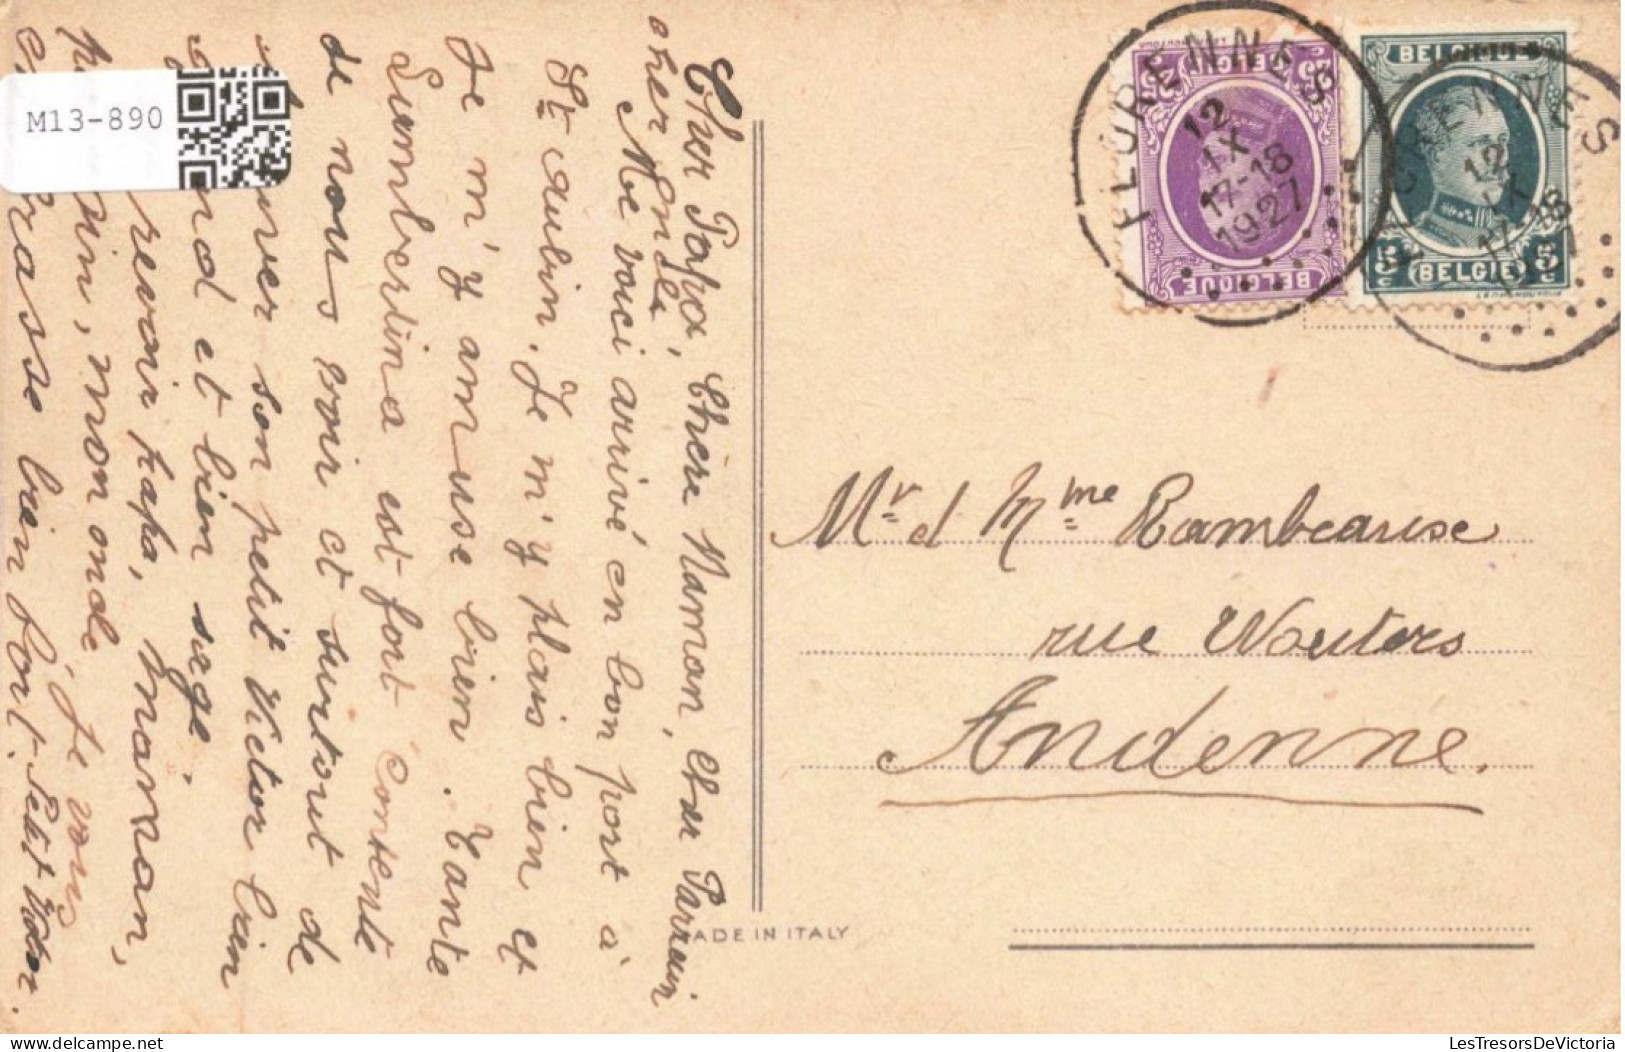 M13-890
Cher Papa, Chère Maman, Cher Parrain
cher Oncle
Me voici arrivé en bon port à
St Aubin. Je m'y plais bien et
Je m'y amuse bien. Tante
Lumbertina est fort contente
de nous voir et surtout de
son petit Victor bien
et bien sage.
revoir papa, maman,
mon oncle, Je vous
embrasse bien fort. Petit Victor.
MADE IN ITALY
FLORENNES
12
IX
17-18
1927
BELGIQUE
BELGIQUE
BELGIË
5
FLORENNES
12
17-18
Mr et Mme Rambeaux
rue Wouters
Andenne.
LesTresorsDeVictoria